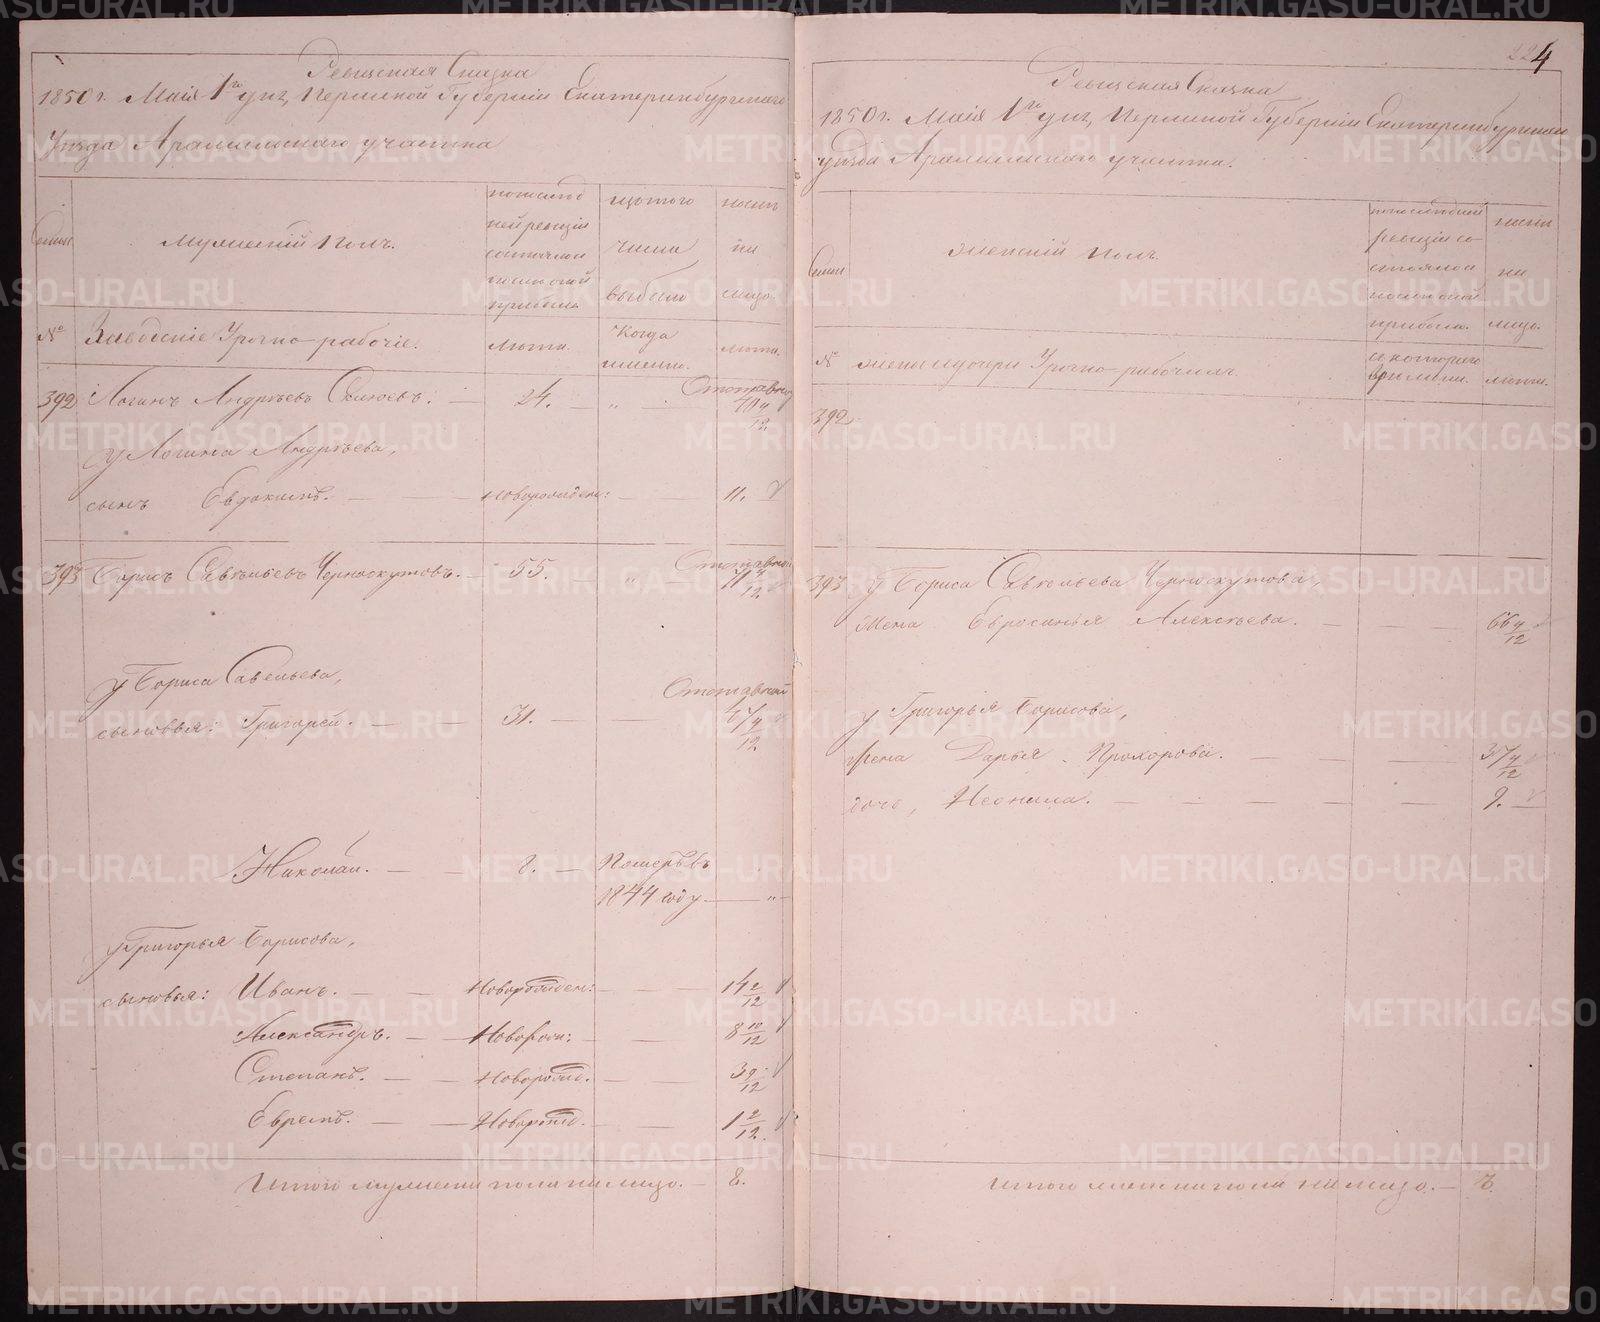 Ревизская Сказка
1850 г. Маія 1го дня, Пермской Губерніи Екатеринбургскаго
Уѣзда Арамильскаго участка
Семьи
Мужескій Полъ.
по послѣд
ней ревизіи
состояло
и послѣ оной
прибыло
изъ того
числа
выбыло
нынѣ
на
лицо
№
Заводскіе Урочно-рабочіе.
лѣта.
Когда
именно.
лѣта.
392 Логинъ Андрѣевъ 24. „ Отставной
40 4/12
У Логина Андрѣева,
сынъ Евдокимъ. новорожден: 11.
393 Борисъ Савельевъ Черноскутовъ. 55. „ Отставной
У Бориса Савельева,
сыновья: Григорей. 31. Отставной
47/12
Николай. 8. Померъ въ
1844 году „
У Григорья Борисова,
сыновья: Иванъ. Новорожден: 14 2/12
Александръ. Новорож: 8 10/12
Степанъ. Новорожд. 3 9/12
Ефремъ. Новорожд. 1 2/12
Итого мужеска пола на лицо. 8.
224
Ревизская Сказка
1850 г. Маія 1го дня, Пермской Губерніи Екатеринбургскаго
уѣзда Арамильскаго участка.
Семьи
Женскій Полъ.
по послѣдней
ревизіи со-
стояло и
послѣ оной
прибыло.
нынѣ
на
лицо.
№ жены и дочери Урочно-рабочихъ
и которого
времени.
лѣта.
392
393 У Бориса Савельева Черноскутова,
Жена Евросинья Алексѣева. 66 4/12
У Григорья Борисова,
Жена Дарья Прохорова.
дочь, Неонила. 9.
Итого женска пола на лицо. 3.
METRIKI.GASO-URAL.RU